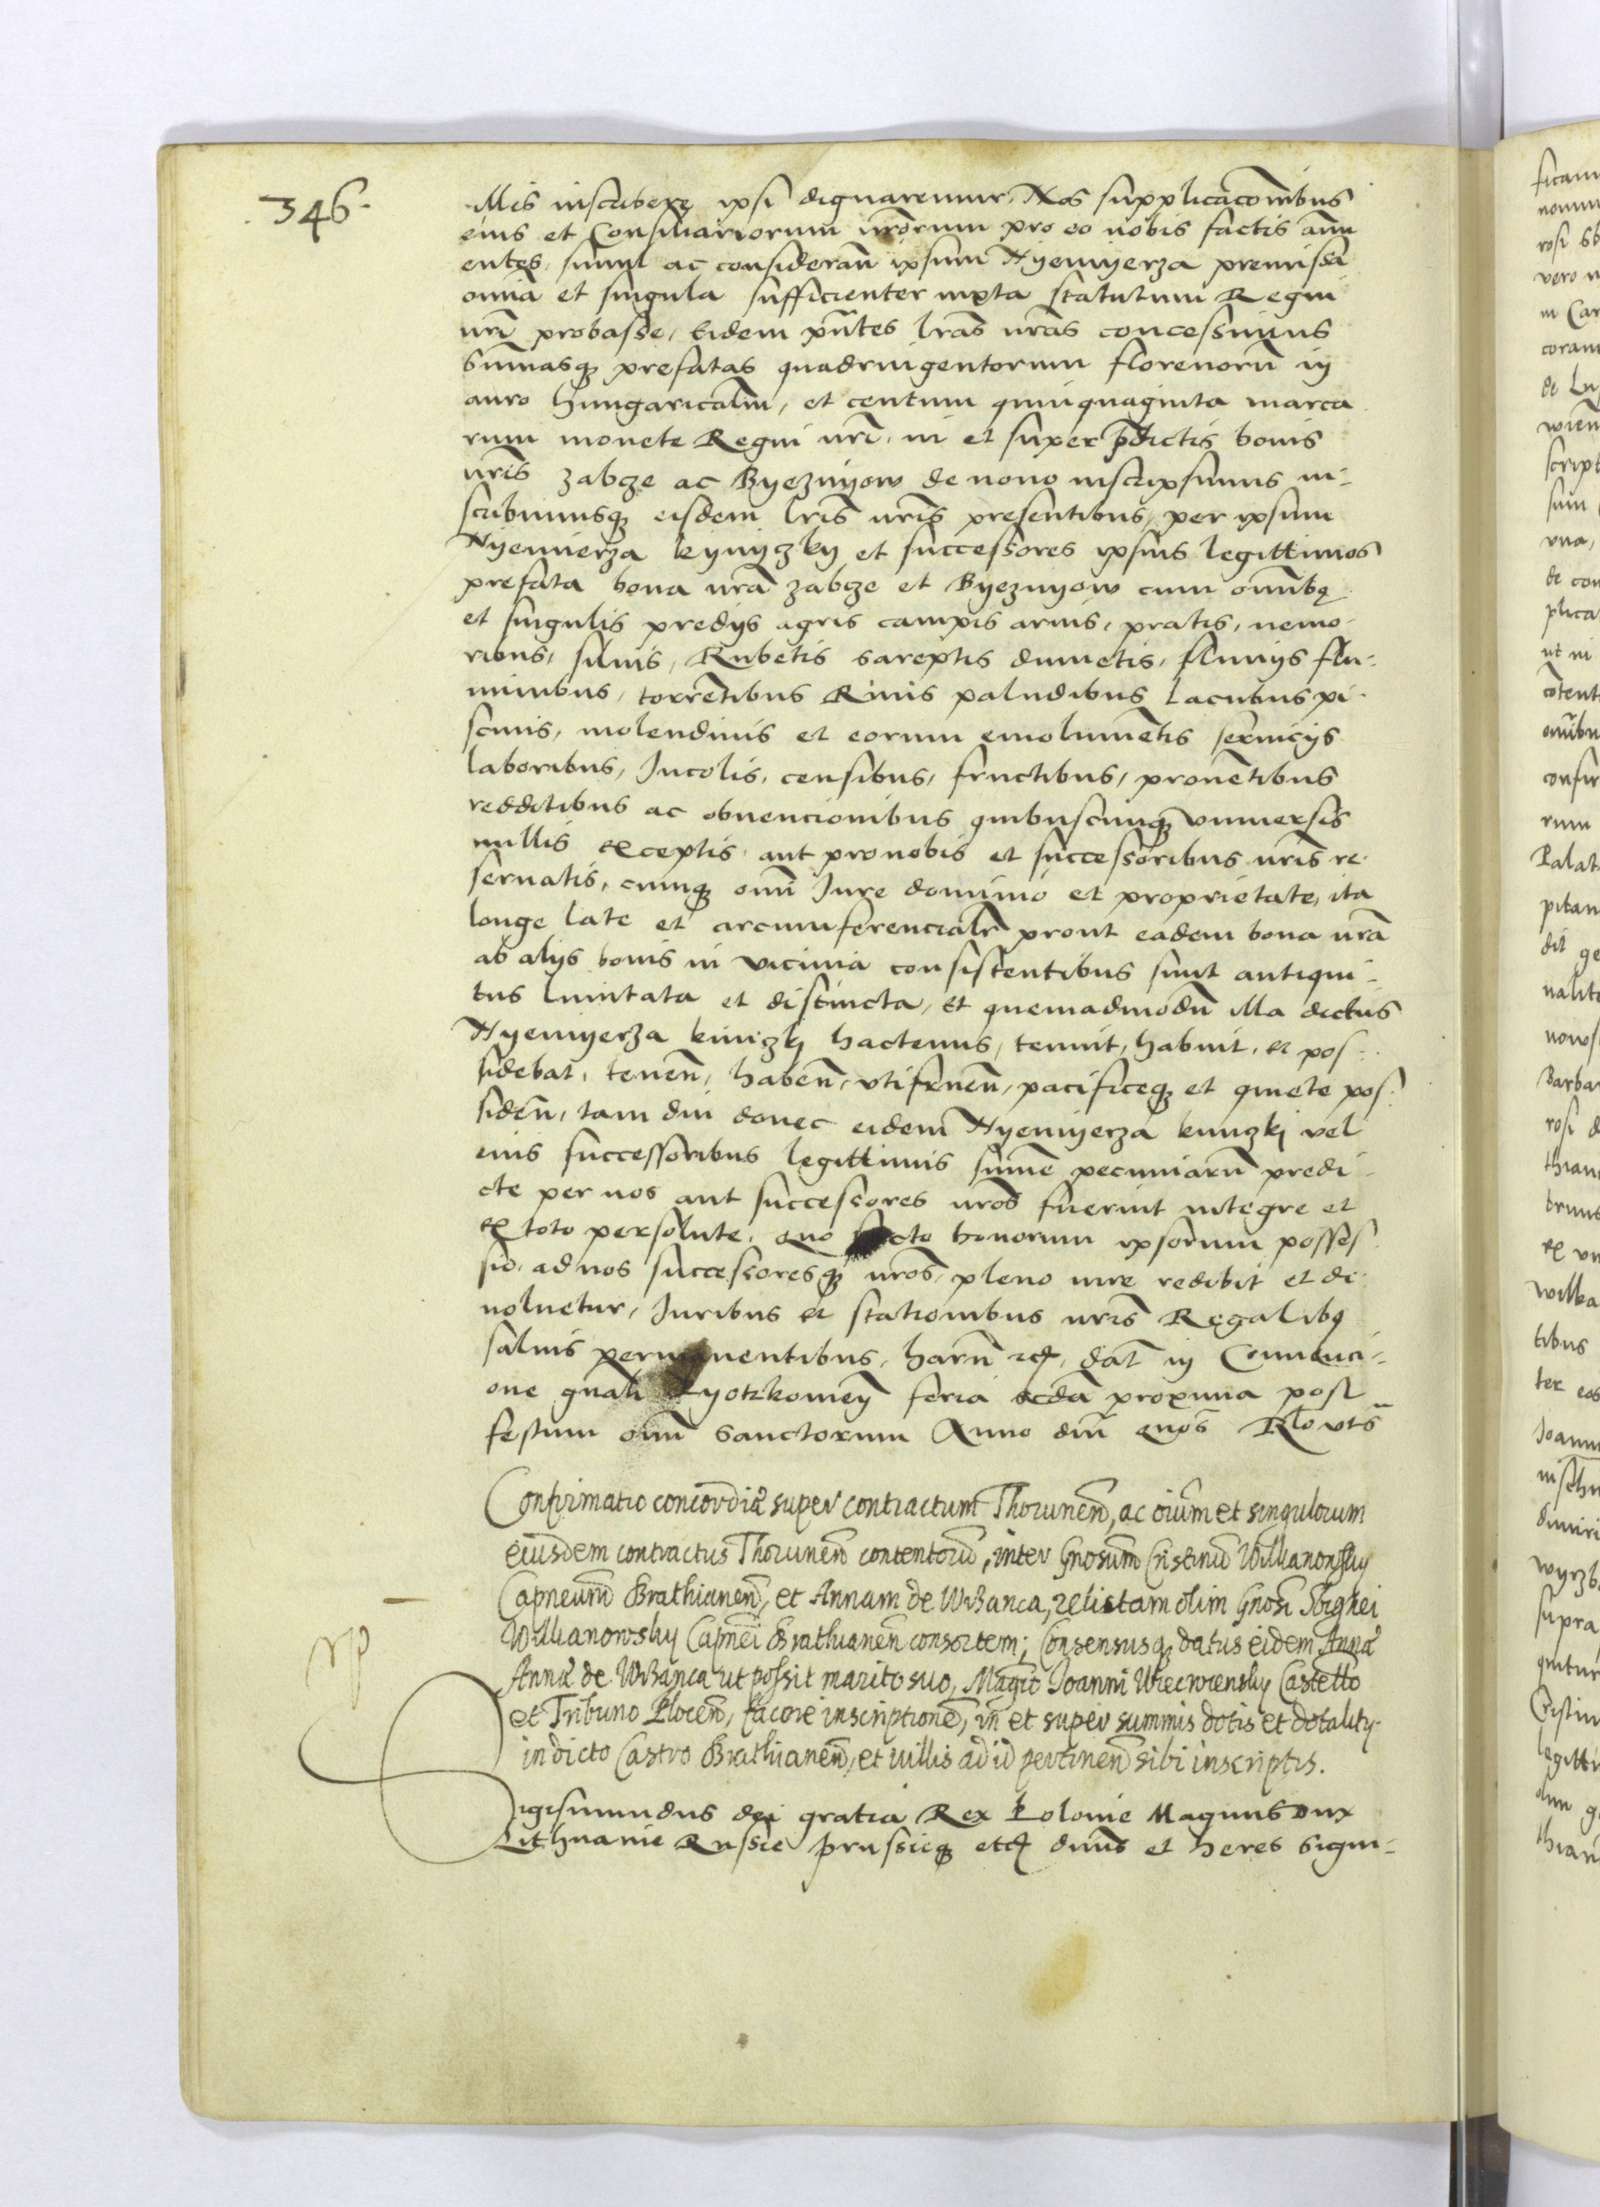 346.
illis inscribere ipsi dignaremur, Nos supplicacõnibus
eius et Consiliariorum nr̃orum pro eo nobis factis annu
entes, simul ac consideran̄ ipsum Nyemyerza premissa
omnia et singula sufficienter iuxta statutum Regni
nr̃i probasse, Eidem pn̄tes lr̃as nr̃as concessimus
sum̄asq3 prefatas quadringentorum florenorū in
auro hungaricaliū, et centum quinquaginta marca
rum monete Regni nr̃i, in et super p̄dictis bonis
nr̃is zabcze ac Byeznyow de nouo inscripsimus in-
scribimusq3 eisdem lr̃is nr̃is presentibus, per ipsum
Nyemierza kynyczky et successores ipsius legittimos
prefata bona nr̃a zabcze et Byeznyow cum om̄ibq
et singulis predijs agris campis aruis, pratis, nemo-
ribus, siluis, Rubetis sareptis dumetis, fluuijs flu-
minibus, torrētibus Riuis paludibus lacubus pi-
scinis, molendinis et eorum emolumētis seruicijs
laboribus, Incolis, censibus, fructibus, prouētibus
redditibus ac obuencionibus quibuscunq3 vniuersis
nullis exceptis, aut pro nobis et successoribus nr̃is re-
seruatis, cumq3 om̄i Iure dominio et proprietate, ita
longe late et circumferencialr̃ prout eadem bona nr̃a
ab alijs bonis in vicinia consistentibus sunt antiqui-
tus limitata et distincta, et quemadmodū illa dictus
Nyemyerza kiniczkj hactenus, tenuit, habuit, et pos-
sidebat, tenen̄, haben̄, vtifruen̄, pacificeq3 et quiete pos-
siden̄, tam diu donec eidem Nyemyerza kiniczkj vel
eius successoribus legittimis sum̄e pecuniarū predi-
cte per nos aut successores nr̃os fuerint integre et
ex toto persolute, quo facto bonorum ipsorum posses-
sio, ad nos successoresq3 nr̃os, pleno iure redibit et de-
uoluetur, Iuribus et stationibus nr̃is Regalibq
salуis permanentibus, harū etc, dat̄ in Conuenci-
one gn̄ali Pyotrkouien̄ feria scd̄a proxima post
festum om̄i Sanctorum Anno dn̄i quo s̄ Rl̄o vt s̄
Confirmatio concordię super contractum Thorunen̄, ac oīum et singulorum
eiusdem contractus Thorunen̄ contentorū, inter Gnosum̄ Cristinū Wilkanowsky
Capneum̄ Brathianen̄, et Annam de Wrzanca, relictam olim Gnosi Sbignei
Wilkanowsky Capnei Brathianen̄ consortem; Consensusq3 datus eidem Annę
Annę de Wrzanca ut possit marito suo, Magco Ioanni Wieczwiensky Castello
et Tribuno Plocen̄, facere inscriptionē, in et super summis dotis et dotality
in dicto Castro Brathianen̄, et uillis ad id pertinen̄ sibi inscriptis.
Sigismundus dei gratia Rex Polonie Magnus Dux
Lithuanie Russie prussieq3 etc dn̄us et heres Signi-